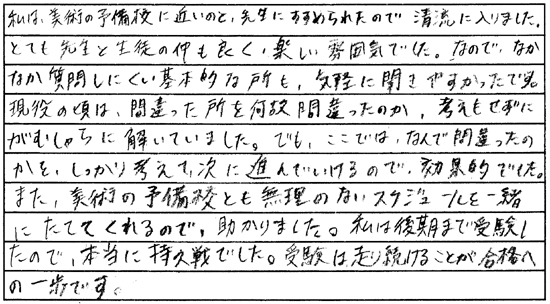 私は、美術の予備校に近いのと、先生にすすめられたので清流に入りました。
とても先生と生徒の仲も良く、楽しい雰囲気でした。なので、なか
なか質問しにくい基本的な所も、気軽に聞きやすかったです。
現役の頃は、間違った所を何故間違ったのか、考えもせずに
がむしゃらに解いていました。でも、ここでは、なんで間違ったの
かを、しっかり考えて、次に進んでいけるので、効果的でした。
また、美術の予備校とも無理のないスケジュールを一緒
にたててくれるので、助かりました。私は後期まで受験し
たので、本当に持久戦でした。受験は走り続けることが合格へ
の一歩です。